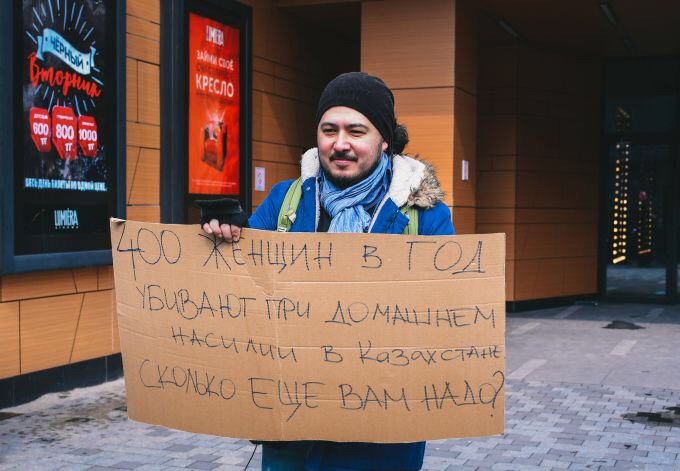 ЧЁРНЫЙ
Вторник
600 ТГ
800 ТГ
1000 ТГ
ВЕСЬ ДЕНЬ БИЛЕТЫ ПО ОДНОЙ ЦЕНЕ
LUMIERA
CINEMA
LUMIERA
ЗАЙМИ СВОЁ
КРЕСЛО
400 ЖЕНЩИН В ГОД
УБИВАЮТ ПРИ ДОМАШНЕМ
НАСИЛИИ В КАЗАХСТАНЕ
СКОЛЬКО ЕЩЕ ВАМ НАДО?